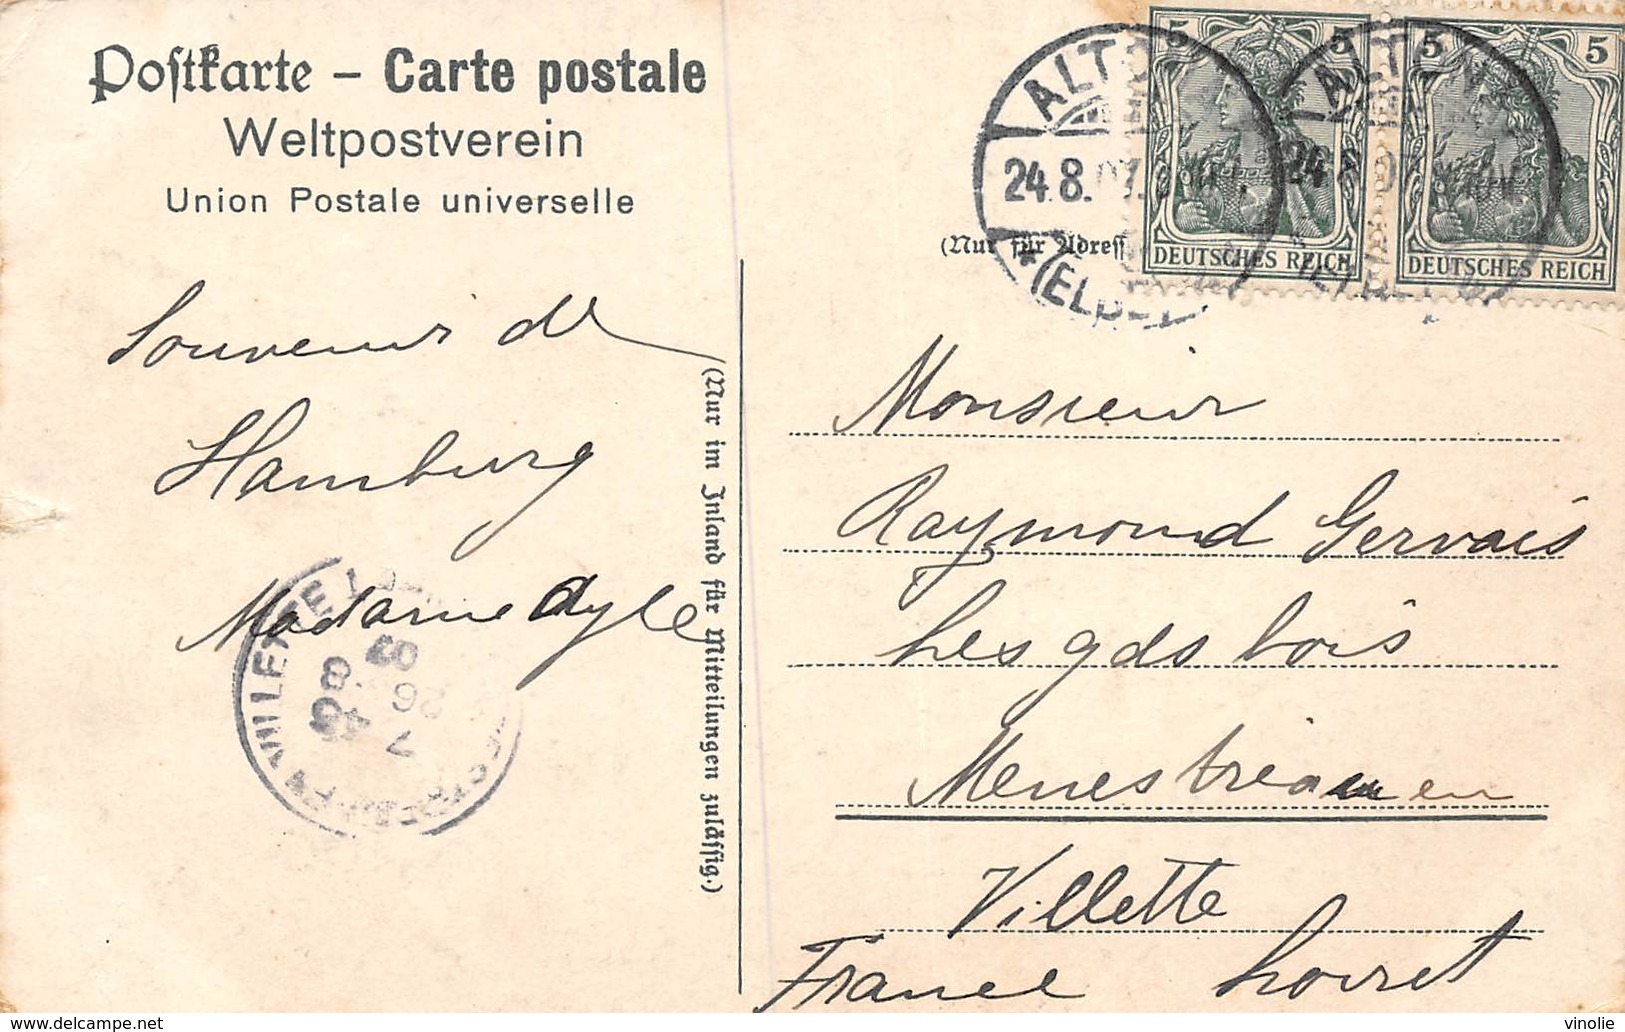 Postkarte – Carte postale
Weltpostverein
Union Postale universelle
ALTONA
24.8.07.
* (ELBE)
ALTONA
24 8 07
(ELBE)
5 5
DEUTSCHES REICH
5 5
DEUTSCHES REICH
(Nur für Adresse
Souvenir de
Hamburg
Madame Ayle
(Nur im Inland für Mitteilungen zulässig.)
LA VILLETTE
7 45
26 8
07
Monsieur
Raymond Gervais
Les gds bois
Menestreau en
Villette
France Loiret
delcampe.net
vinolie